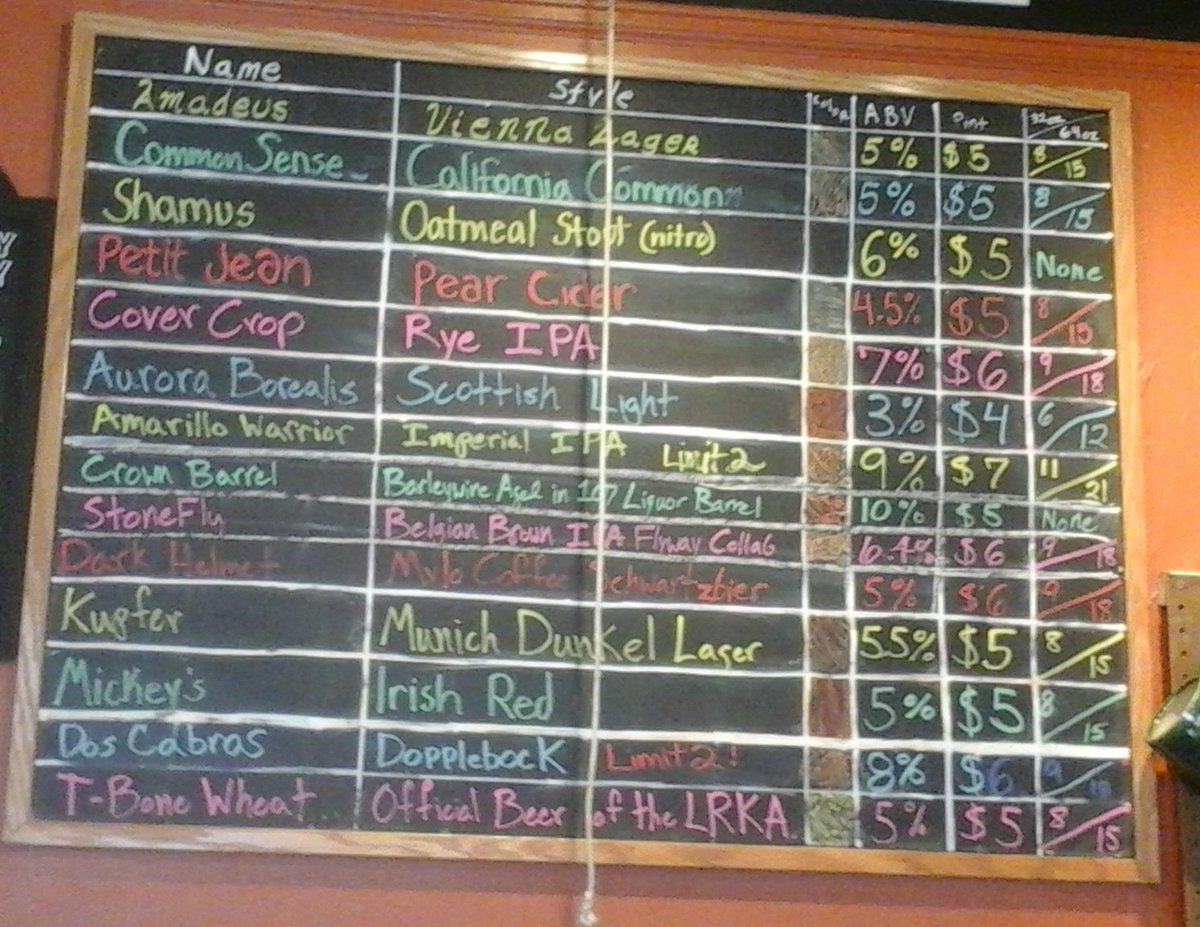 Name Style Color ABV Pint 32oz/64oz
Amadeus Vienna Lager 5% $5 8/15
Common Sense California Common 5% $5 8/15
Shamus Oatmeal Stout (nitro) 6% $5 None
Petit Jean Pear Cider 4.5% $5 8/15
Cover Crop Rye IPA 7% $6 9/18
Aurora Borealis Scottish Light 3% $4 6/12
Amarillo Warrior Imperial IPA Limit 2 9% $7 11/21
Crown Barrel Barleywine Aged in 107 Liquor Barrel 10% $5 None
StoneFly Belgian Brown IPA Flyway Collab 6.4% $6 9/18
Dark Helmet Mylo Coffee Schwartzbier 5% $6 9/18
Kupfer Munich Dunkel Lager 5.5% $5 8/15
Mickey's Irish Red 5% $5 8/15
Dos Cabros Dopplebock Limit 2! 8% $6 9/18
T-Bone Wheat Official Beer of the LRKA 5% $5 8/15